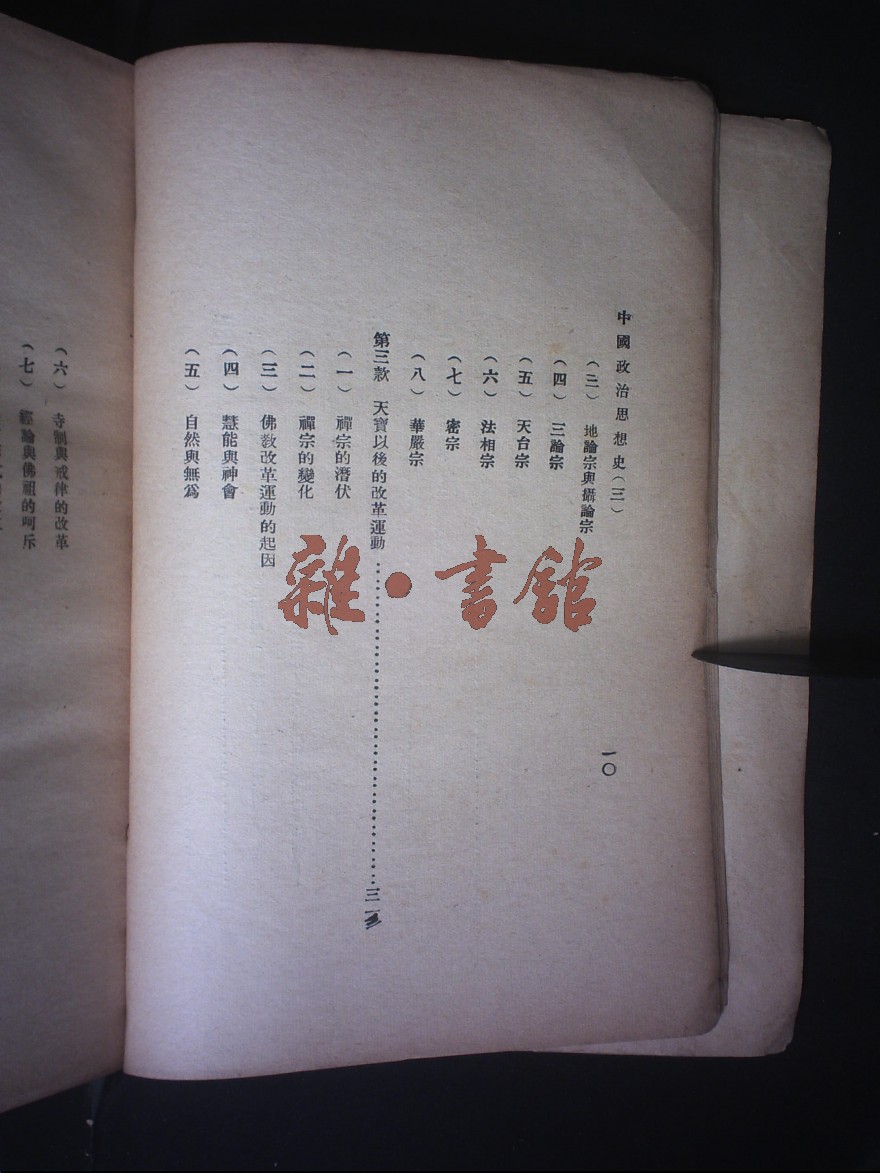 中國政治思想史(三)
一〇
(三) 地論宗與攝論宗
(四) 三論宗
(五) 天台宗
(六) 法相宗
(七) 密宗
(八) 華嚴宗
第三款 天寶以後的改革運動……三一
(一) 禪宗的潛伏
(二) 禪宗的變化
(三) 佛教改革運動的起因
(四) 慧能與神會
(五) 自然與無爲
(六) 寺制與戒律的改革
(七) 經論與佛祖的呵斥
雜·書館